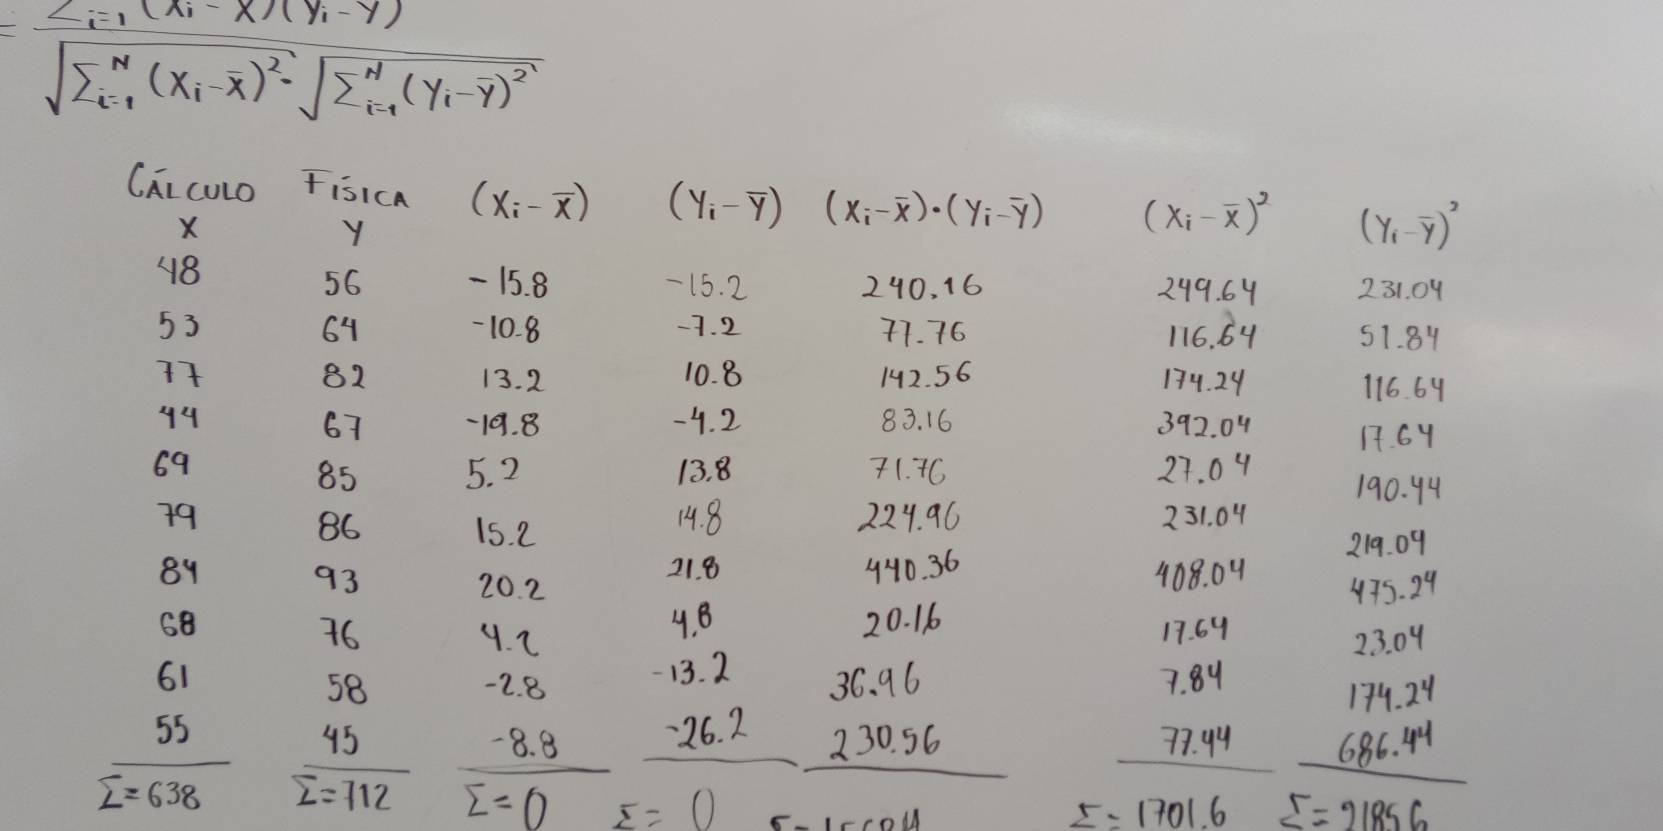 = Σi=1 (xi - x)(yi - y)
√Σi=1^N (xi - x̄)² · √Σi=1^N (yi - ȳ)²
CÁLCULO FÍSICA (xi - x̄) (yi - ȳ) (xi - x̄)·(yi - ȳ) (xi - x̄)² (yi - ȳ)²
x y
48 56 -15.8 -15.2 240.16 249.64 231.04
53 64 -10.8 -7.2 77.76 116.64 51.84
77 82 13.2 10.8 142.56 174.24 116.64
44 67 -19.8 -4.2 83.16 392.04 17.64
69 85 5.2 13.8 71.76 27.04 190.44
79 86 15.2 14.8 224.96 231.04 219.04
84 93 20.2 21.8 440.36 408.04 475.24
68 76 4.2 4.8 20.16 17.64 23.04
61 58 -2.8 -13.2 36.96 7.84 174.24
55 45 -8.8 -26.2 230.56 77.44 686.44
Σ=638 Σ=712 Σ=0 Σ=0 Σ=1701.6 Σ=2185.6